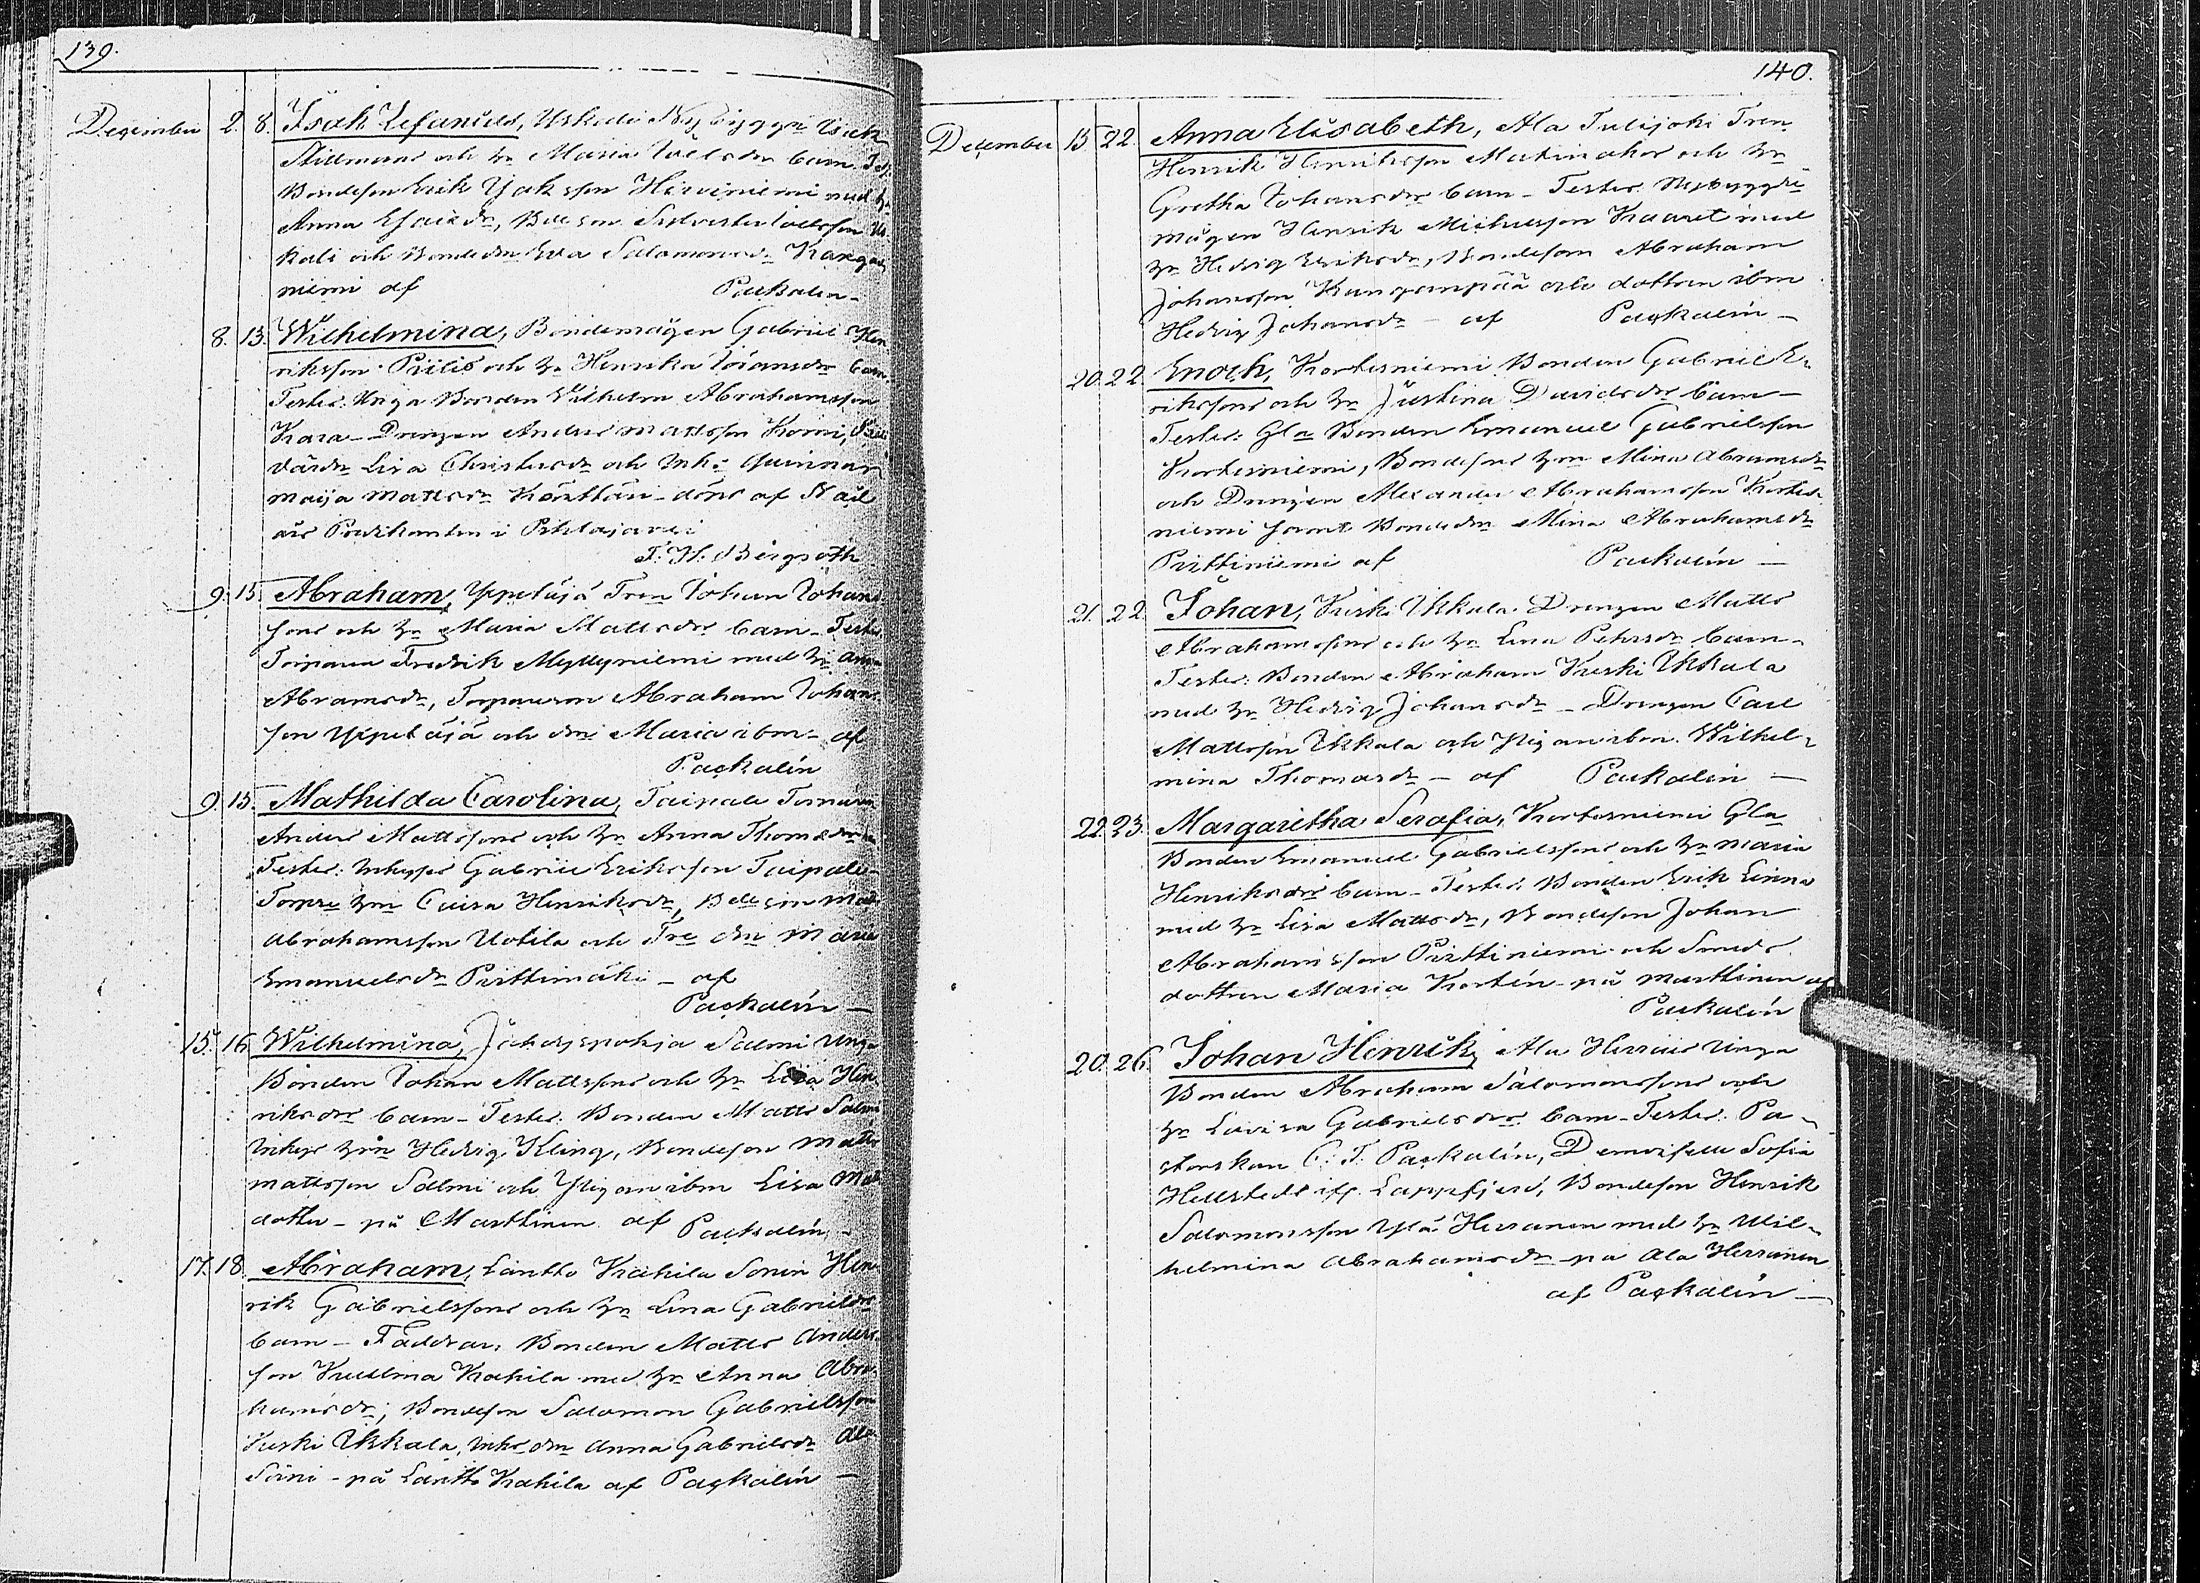 139.
December 2. 8. Isak Zefanias, Uskali Nybyggn Isak
och hn Maria barn. Test.
Bondeson Erik Hirviniemi med hn
Anna Esaiæ dr, son
kali och Bondedn Eva Salomonsdr Kangas
niemi af Paçkalén -
8. 13. Wilhelmina, Bondemågen Gabriel Hen
riksson Piilis och hn Henrika Johansdrs barn.
Testes: Unga Bonden Wilhelm Abrahamsson
Kara - Drengen Anders Mattsson Kormi,
Lisa och Inh:s Quinnan
Maija Mattsdr - döpt af
års Predikanten i Pihlajavesi
F. H. Bergroth
9. 15. Abraham, Yppeläjä Tren Johan Johans
sons och hn Maria Mattsdrs barn - Testes
Torparen Fredrik Myllyniemi med hn Anna
Abramsdr, Torpareson Abraham Johans
son Yppeläjä och dn Maria ibm - af
Paçkalén
9. 15. Mathilda Carolina, Taipale Torparen
Anders Mattssons och hn Anna Thomædrs
Testes: Gabriel Eriksson Taipale -
Torpre hn Caisa Henriksdr, son Matts
Abrahamsson Uotila och Tre dn Maria
Emanuelsdr Pirttimäki - af
Paçkalén -
15. 16. Wilhelmina, Salmi Unga
Bonden Johan Mattssons och hn Lisa Hen
riksdrs barn - Testes: Bonden Matts Salmi
Inhys hn Hedvig Kling, Bondeson Matts
Mattsson Salmi och Pigan ibm Lisa Mats
dotter - på Marttinen af Paçkalén -
17. 18. Abraham, Läntts Kahila Sonen Hen
rik Gabrielssons och hn Lena Gabrielsdrs
barn - Faddrar: Bonden Matts Anders
son Kuulma Kahila med hn Anna Abra
hamsdr; Bondeson Salomon Gabrielsson
Kuski Ukkola, Inhs dn Anna Gabrielsdr Ala
Säni - på Läntts Kahila af Paçkalén -
140.
December 13 22. Anna Elisabeth, Ala Tulijoki Tren
Henrik Henriksson Matinaho och hn
Gretha Johansdrs barn - Testes Nybygge
mågen Henrik Michelsson Kaaret med
hn Hedvig Eriksdr, Bondeson Abraham
Johansson Kangaspää och dottren ibm
Hedvig Johansdr - af Paçkalén -
20. 22. Enoch, Kortesniemi Bonden Gabriel E-
rikssons och hn Justina Davidsdrs barn -
Testes: Gla Bonden Emanuel Gabrielsson
Kortesniemi, Bondesons hn Mina Abramsdr
och Drengen Alexander Abrahamsson Kortes-
niemi samt Bondedn Mina Abrahamsdr
Pirttiniemi af Paçkalén -
21. 22. Johan, Kuski Ukkola Drengen Matts
Abrahamssons och hn Lena Pehrsdrs barn -
Testes: Bonden Abraham Kuski Ukkola
med hn Hedvig Johansdr - Drengen Carl
Mattsson Ukkola och Pigan ibm Wilhel-
mina Thomasdr - af Paçkalén -
22. 23. Margaretha Serafia, Kortesniemi Gla
Bonden Emanuel Gabrielssons och hn Maria
Henriksdrs barn - Testes: Bonden Erik Linna
med hn Lisa Mattsdr, Bondeson Johan
Abrahamsson Pirttiniemi och Smeds
dottren Maria Kortén - på Marttinen af
Paçkalén
20. 26. Johan Henrik, Ala Herrais Unga
Bonden Abraham Salomonssons och
hn Lovisa Gabrielsdrs barn - Testes: Pa-
storskan C. F. Paçkalén, Demoiselle Sofia
Hellstedt ifr. Lappfjerd, Bondeson Henrik
Salomonsson Ylä Herranen med hn Wil-
helmina Abrahamsdr - på Ala Herranen
af Paçkalén -